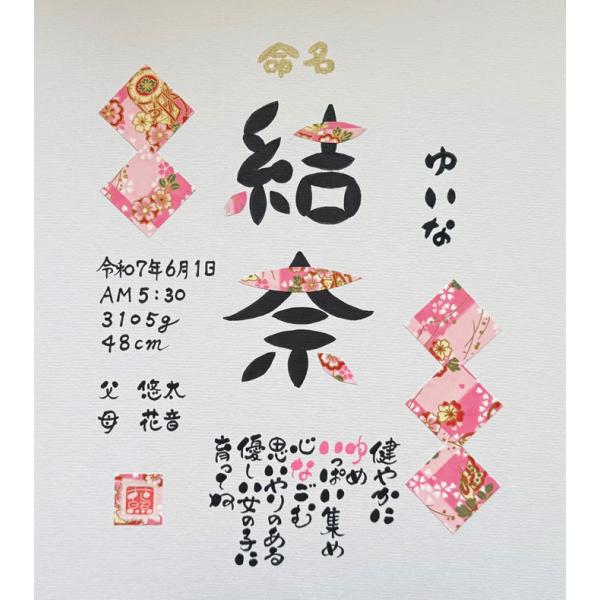 命名
結奈
ゆいな
令和7年6月1日
AM5:30
3105g
48cm
父 悠太
母 花音
健やかに
ゆめ
いっぱい集め
心なごむ
思いやりのある
優しい女の子に
育ってね